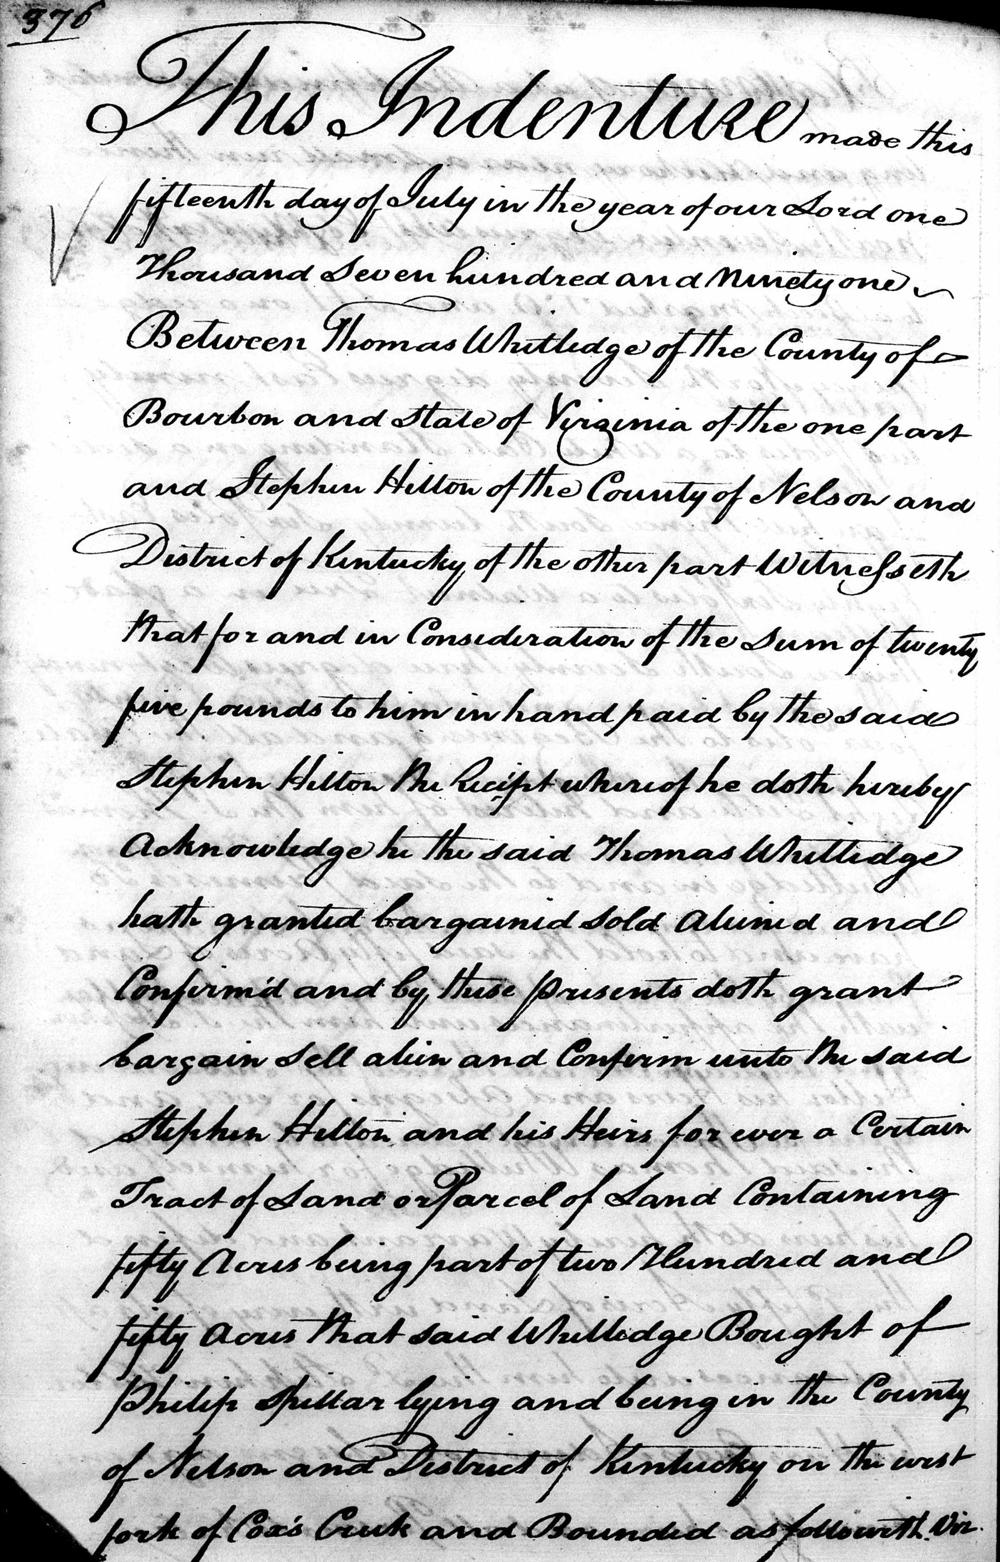 376
This Indenture made this
fifteenth day of July in the year of our Lord one
Thousand Seven hundred and Ninety one
Between Thomas Whitledge of the County of
Bourbon and State of Virginia of the one part
and Stephen Hilton of the County of Nelson and
District of Kentucky of the other part Witnesseth
that for and in Consideration of the Sum of twenty
five pounds to him in hand paid by the said
Stephen Hilton the Recipt whereof he doth hereby
Acknowledge he the said Thomas Whitledge
hath granted bargained Sold Aliened and
Confirm'd and by these Presents doth grant
bargain Sell alien and Confirm unto the said
Stephen Hilton and his Heirs for ever a Certain
Tract of Land or Parcel of Land Containing
fifty Acres being part of two Hundred and
fifty Acres that said Whitledge Bought of
Philip Spillar lying and being in the County
of Nelson and District of Kentucky on the west
fork of Cox's Creek and Bounded as followeth Viz.